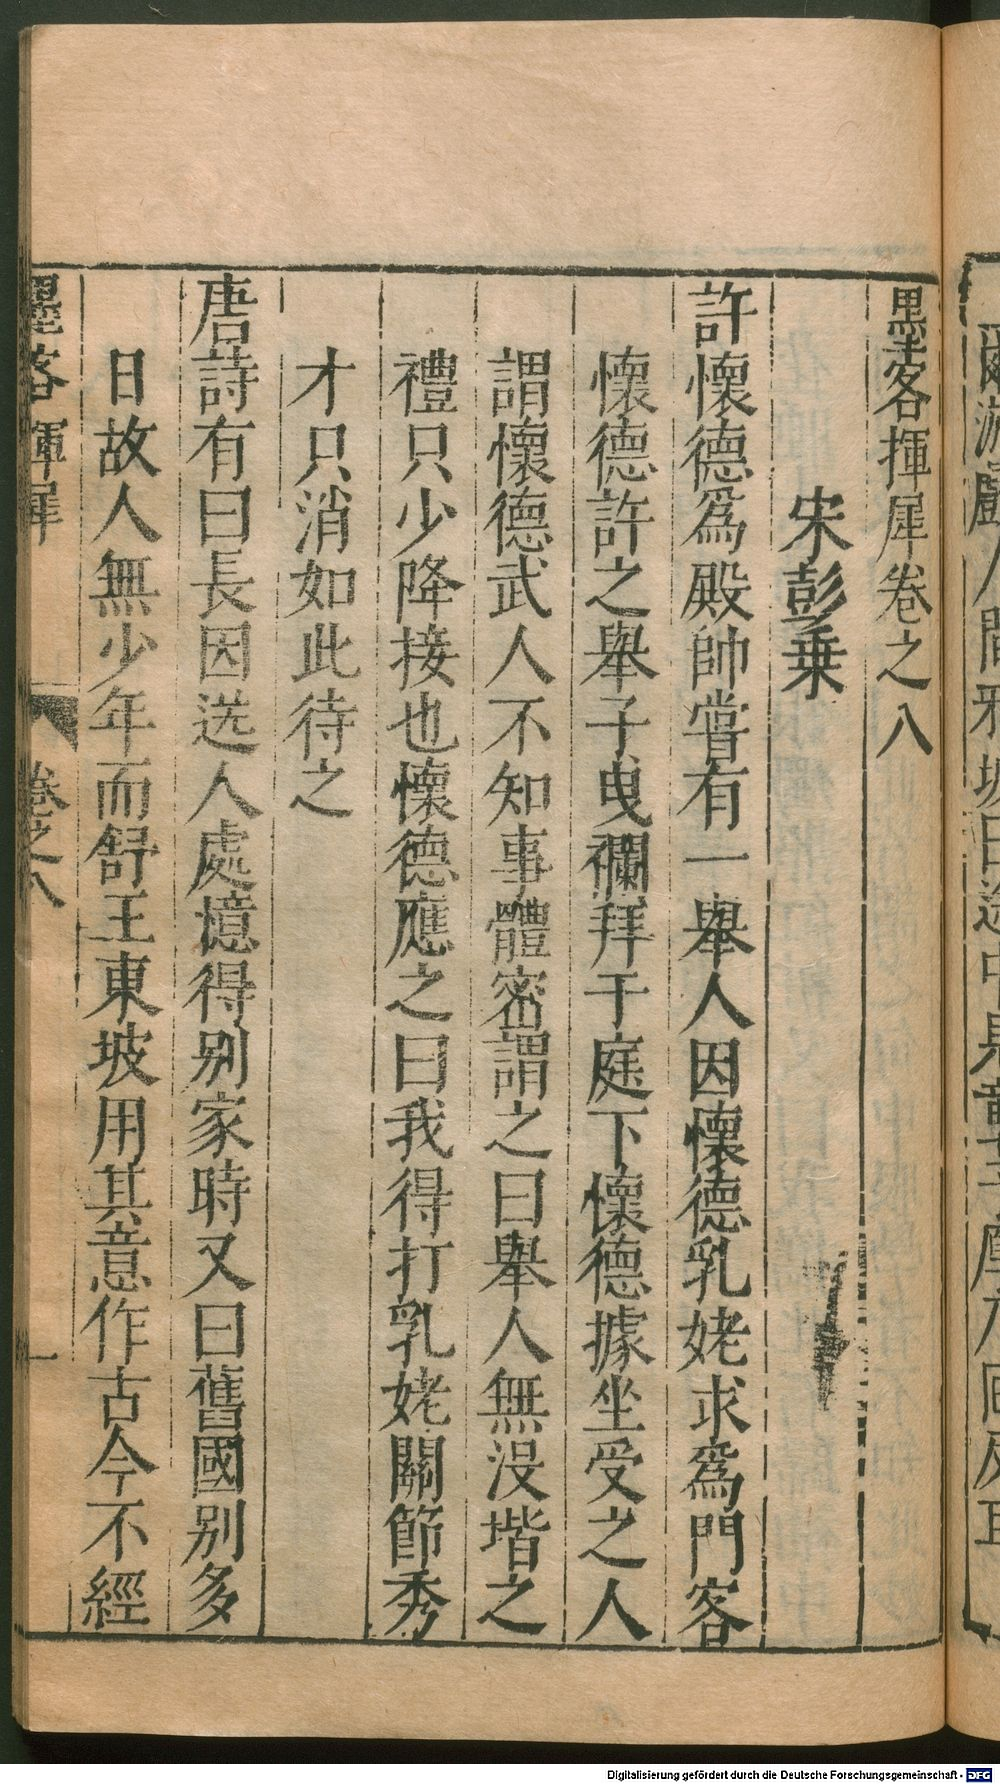 墨客揮犀卷之八
宋彭乗
許懷德爲殿帥嘗有一舉人因懷德乳姥求爲門客
懷德許之舉子曳襴拜于庭下懷德據坐受之人
謂懷德武人不知事體密謂之曰舉人無没堦之
禮只少降接也懷德應之曰我得打乳姥關節秀
才只消如此待之
唐詩有曰長因送人處憶得别家時又曰舊國别多
日故人無少年而舒王東坡用其意作古今不經
墨客揮犀
卷之八
一
Digitalisierung gefördert durch die Deutsche Forschungsgemeinschaft - DFG